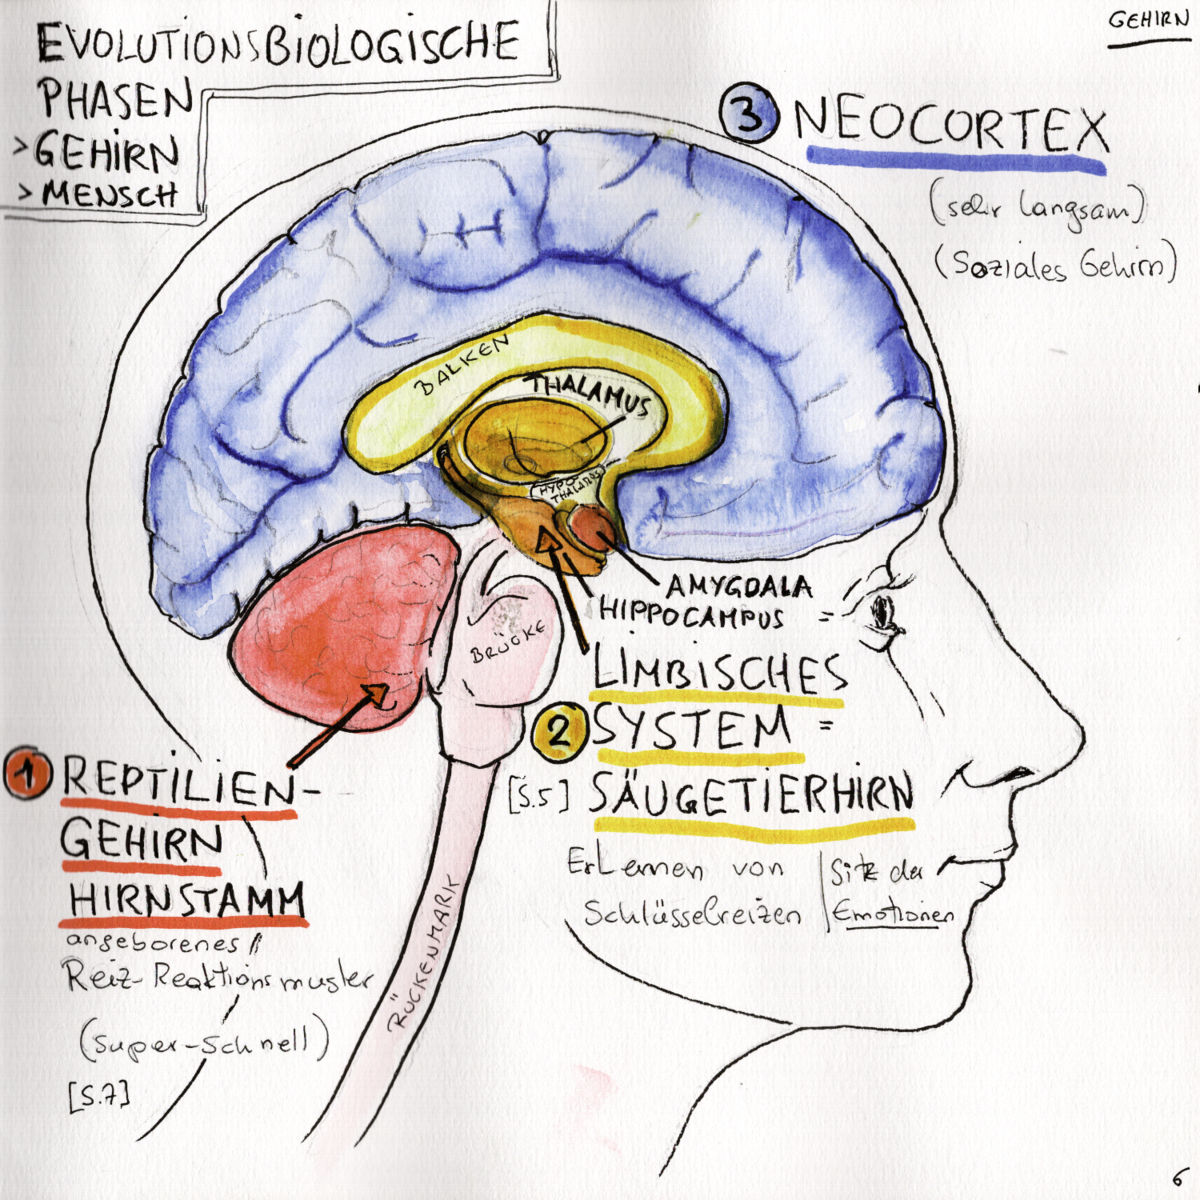 EVOLUTIONSBIOLOGISCHE
PHASEN
>GEHIRN
>MENSCH
GEHIRN
3 NEOCORTEX
(sehr langsam)
(Soziales Gehirn)
BALKEN
THALAMUS
HYPO-
THALAMUS
AMYGDALA
HIPPOCAMPUS =
BRÜCKE
LIMBISCHES
2 SYSTEM =
[S.5] SÄUGETIERHIRN
ErLernen von
Schlüsselreizen
Sitz der
Emotionen
1 REPTILIEN-
GEHIRN
HIRNSTAMM
angeborenes
Reiz-Reaktionsmuster
(super-schnell)
[S.7]
RÜCKENMARK
6